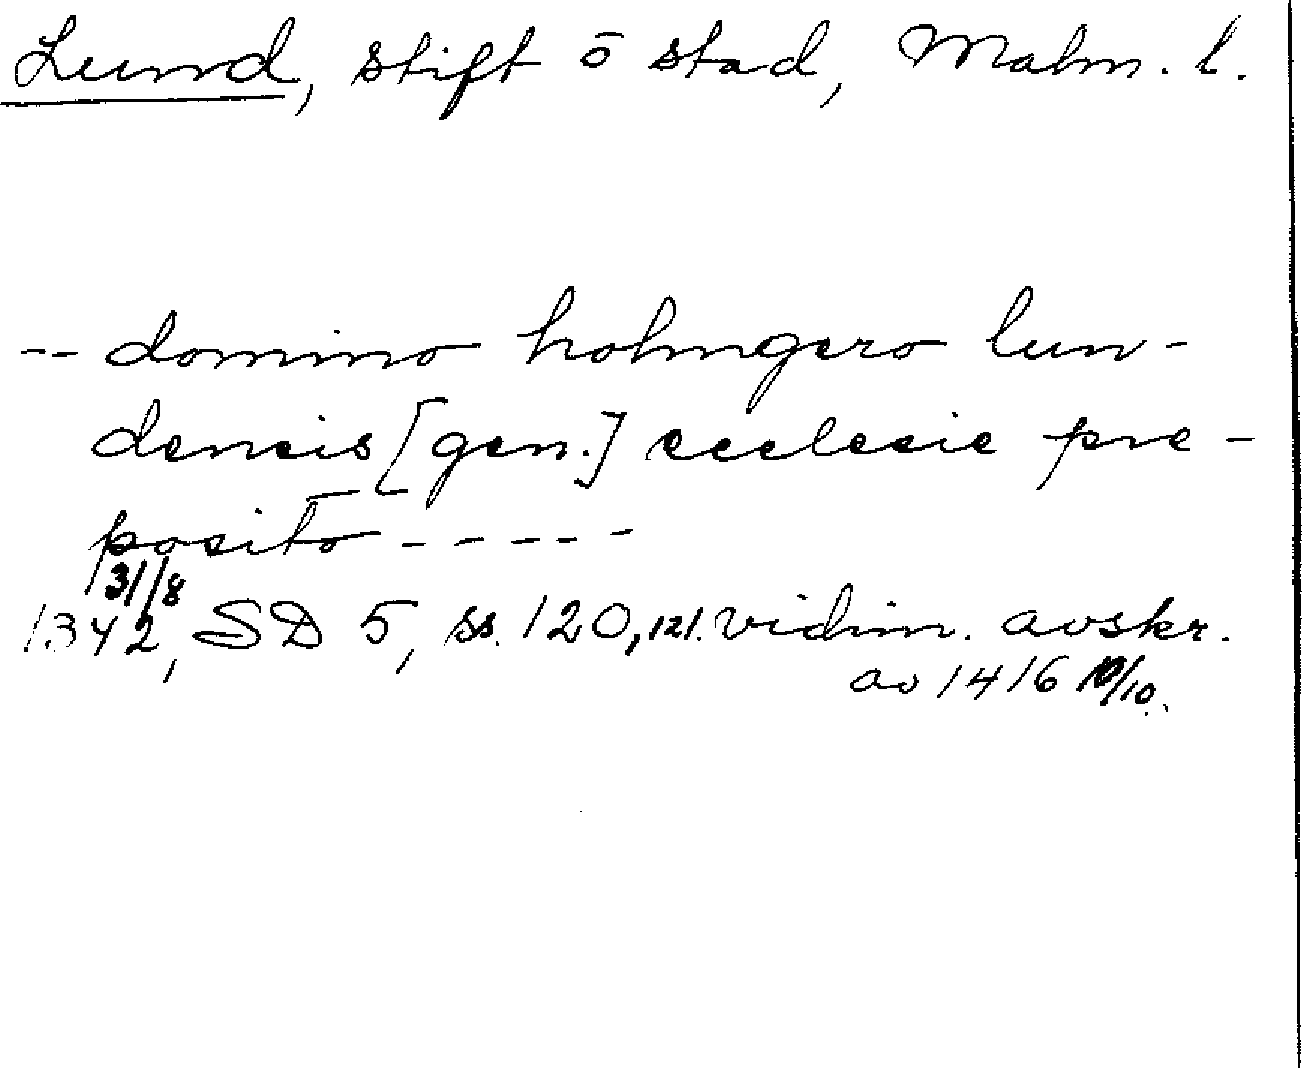 Lund, stift o stad, Malm. l.
-- domino holmgero lun-
densis [gen.] ecclesie pre-
posito -----
31/8
1342, SD 5, ss. 120, 121. vidim. avskr.
av 1416 10/10.